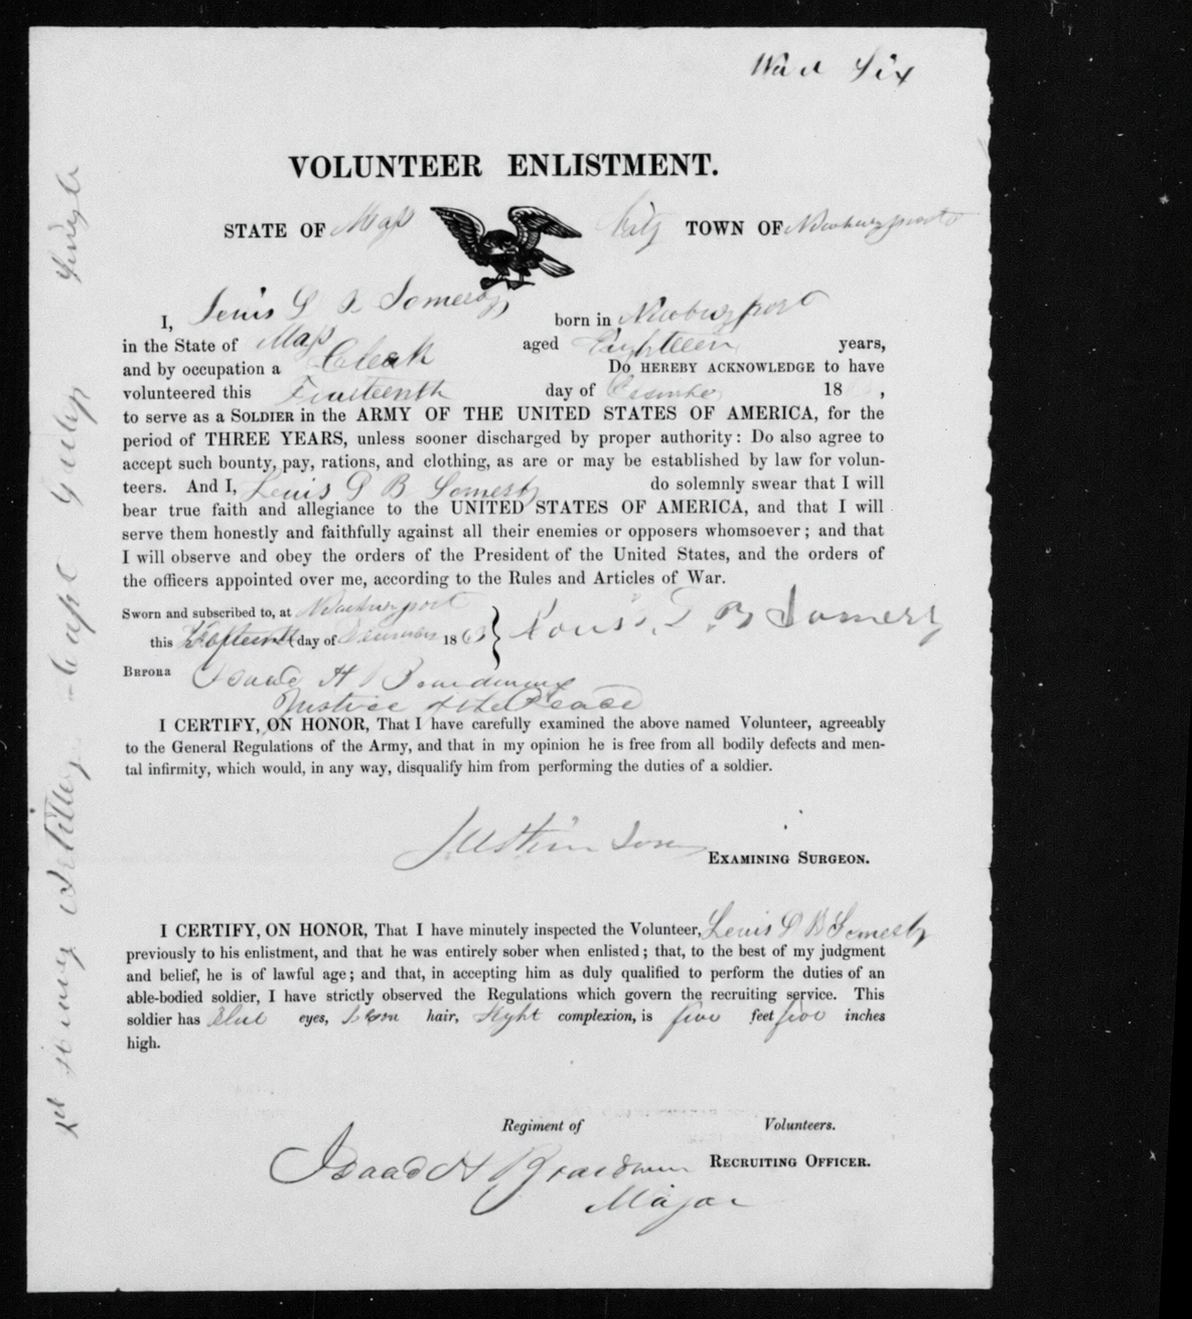 Ward Six
VOLUNTEER ENLISTMENT.
STATE OF Mass City TOWN OF Newburyport
I, Lewis Somerby born in Newburyport
in the State of Mass aged Eighteen years,
and by occupation a Clerk Do HEREBY ACKNOWLEDGE to have
volunteered this day of 18 ,
to serve as a SOLDIER in the ARMY OF THE UNITED STATES OF AMERICA, for the
period of THREE YEARS, unless sooner discharged by proper authority: Do also agree to
accept such bounty, pay, rations, and clothing, as are or may be established by law for volun-
teers. And I, Lewis P B Somerby do solemnly swear that I will
bear true faith and allegiance to the UNITED STATES OF AMERICA, and that I will
serve them honestly and faithfully against all their enemies or opposers whomsoever; and that
I will observe and obey the orders of the President of the United States, and the orders of
the officers appointed over me, according to the Rules and Articles of War.
Sworn and subscribed to, at Newburyport
this day of 186 B Somerby
BEFORE Isaac H Boardman
Justice of the Peace
I CERTIFY, ON HONOR, That I have carefully examined the above named Volunteer, agreeably
to the General Regulations of the Army, and that in my opinion he is free from all bodily defects and men-
tal infirmity, which would, in any way, disqualify him from performing the duties of a soldier.
EXAMINING SURGEON.
I CERTIFY, ON HONOR, That I have minutely inspected the Volunteer, Lewis P B Somerby
previously to his enlistment, and that he was entirely sober when enlisted; that, to the best of my judgment
and belief, he is of lawful age; and that, in accepting him as duly qualified to perform the duties of an
able-bodied soldier, I have strictly observed the Regulations which govern the recruiting service. This
soldier has Blue eyes, hair, Light complexion, is five feet five inches
high.
Regiment of Volunteers.
Isaac H Boardman RECRUITING OFFICER.
Major
Heavy Artillery Capt Single